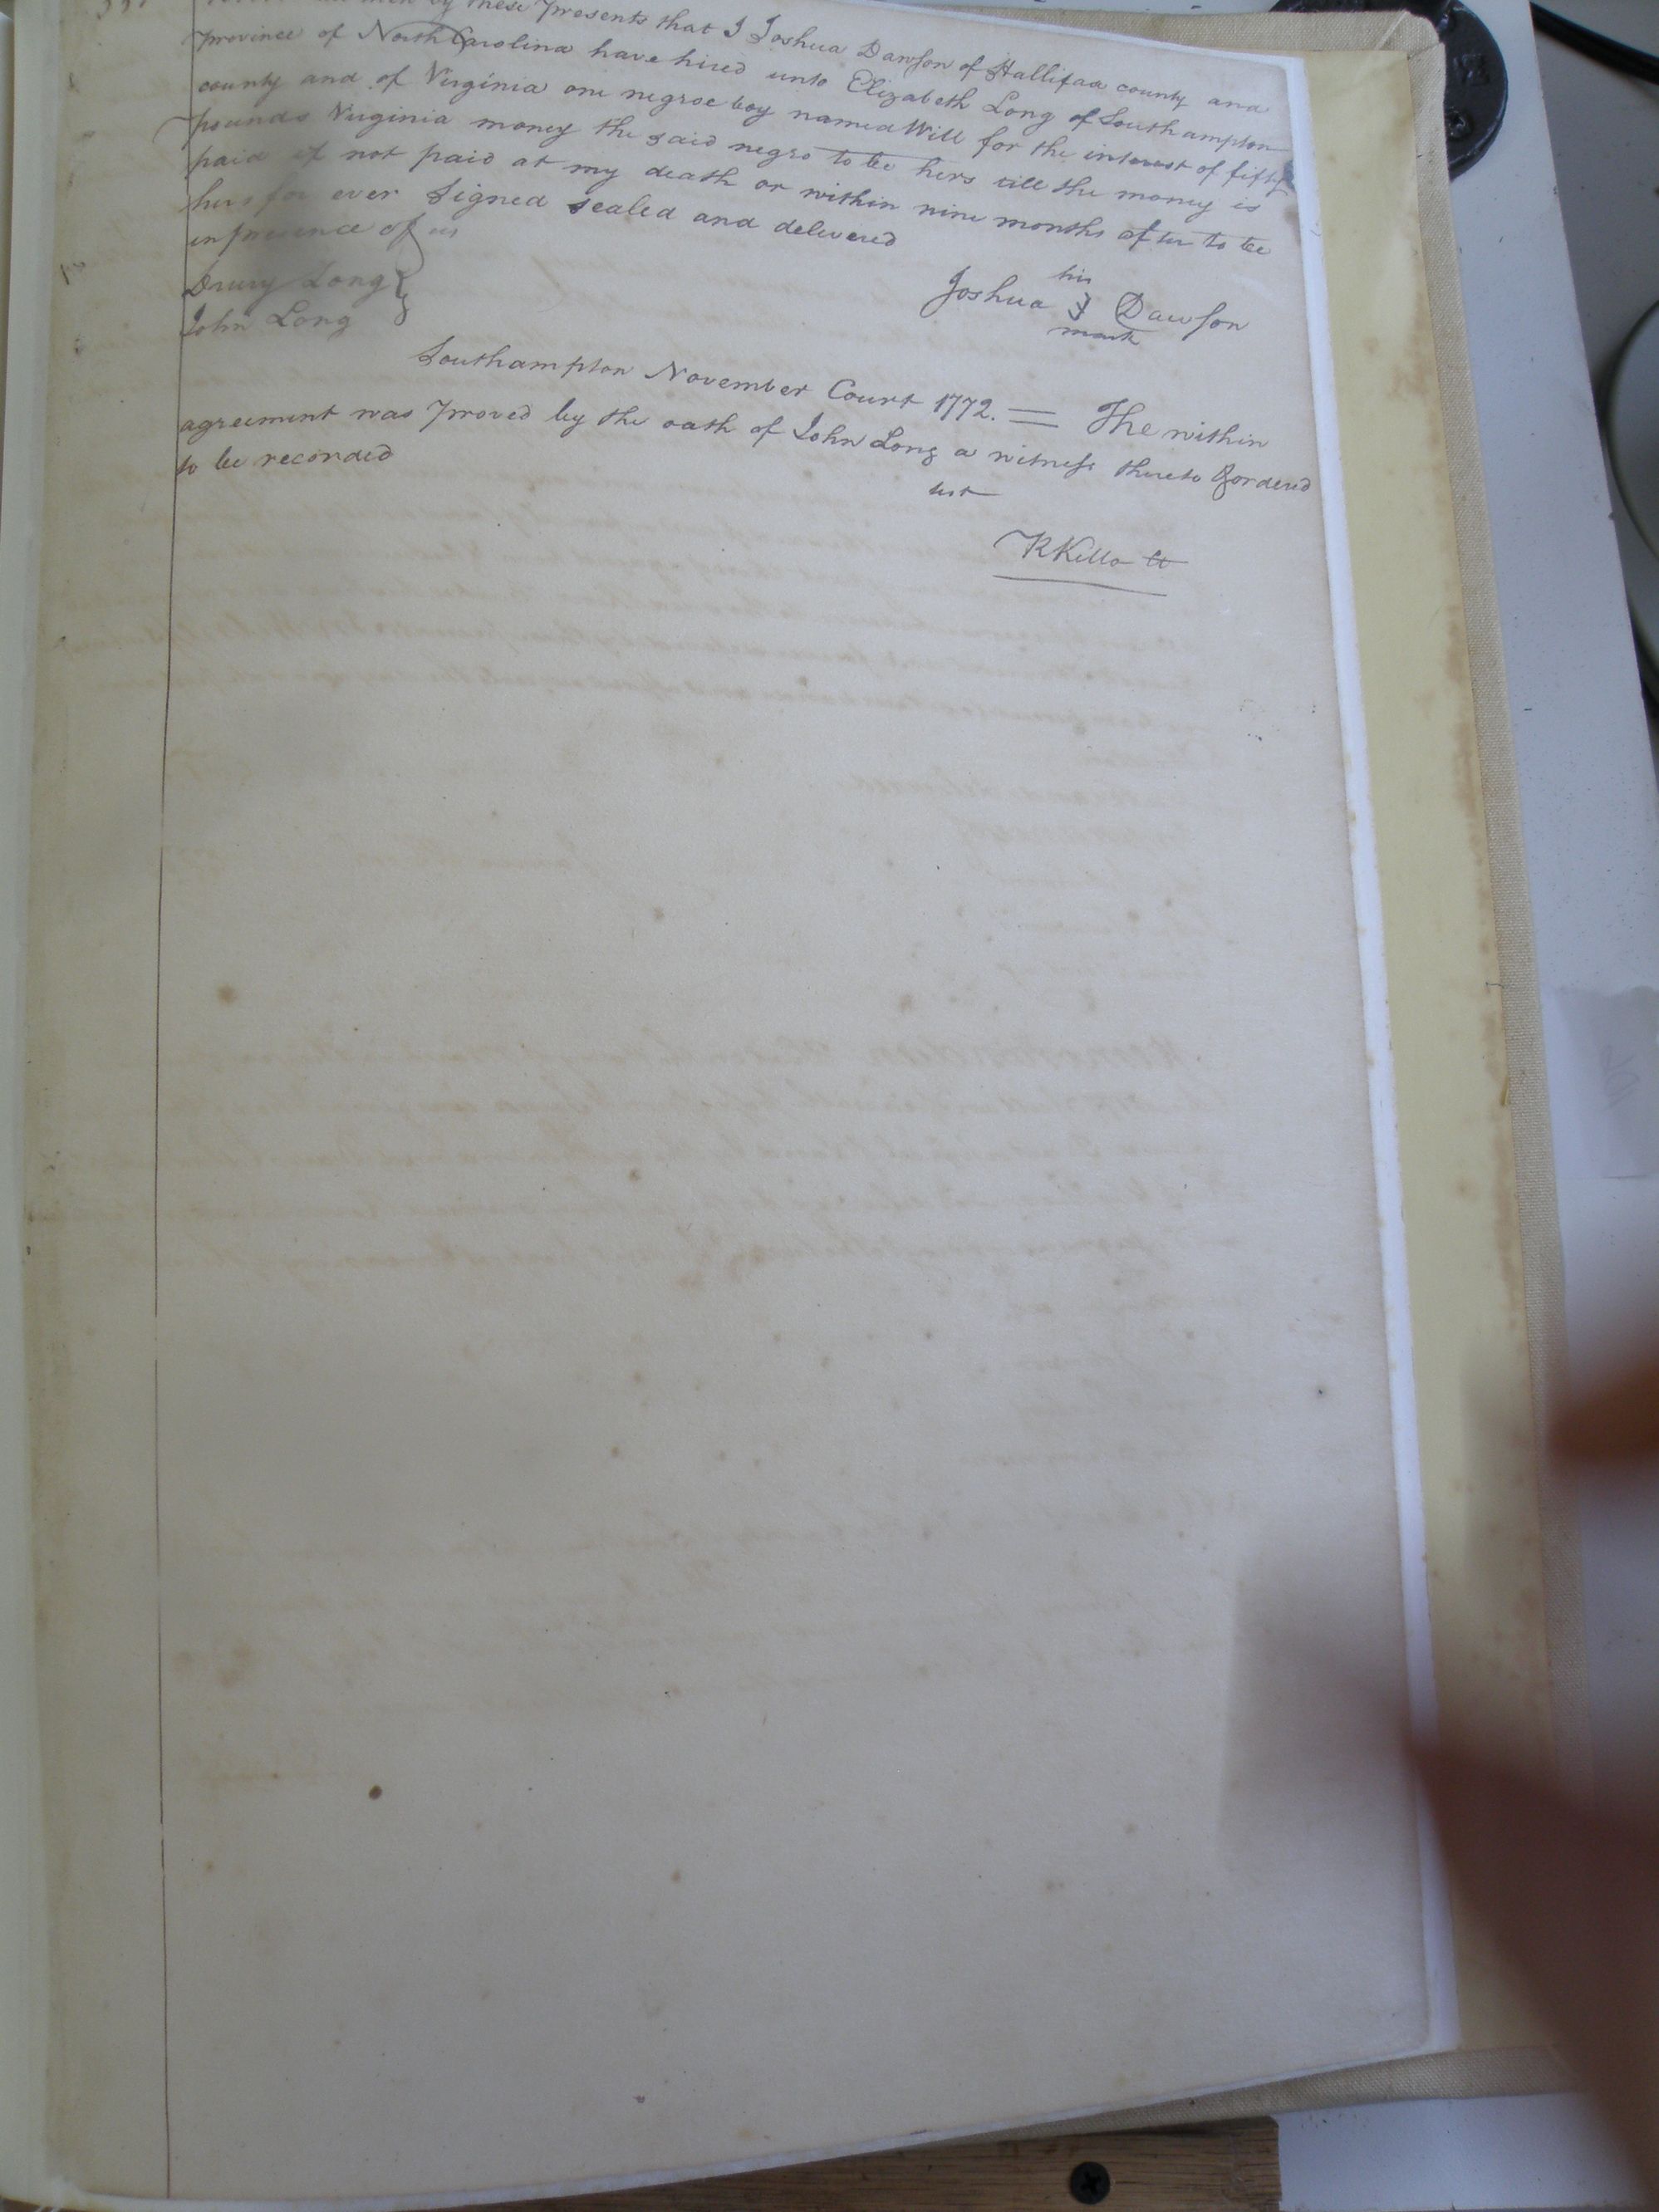 men by these presents that I Joshua Dawson of Hallifax county and
province of North Carolina have hired unto Elizabeth Long of Southampton
county and of Virginia one negroe boy named Will for the interest of fifty
pounds Virginia money the said negro to be hers till the money is
paid if not paid at my death or within nine months after to be
hers for ever Signed sealed and delivered
in presence of us
Drury Long
John Long
his
Joshua J Dawson
mark
Southampton November Court 1772. = The within
agreement was proved by the oath of John Long a witness thereto & ordered
to be recorded
test
R Kello Ct